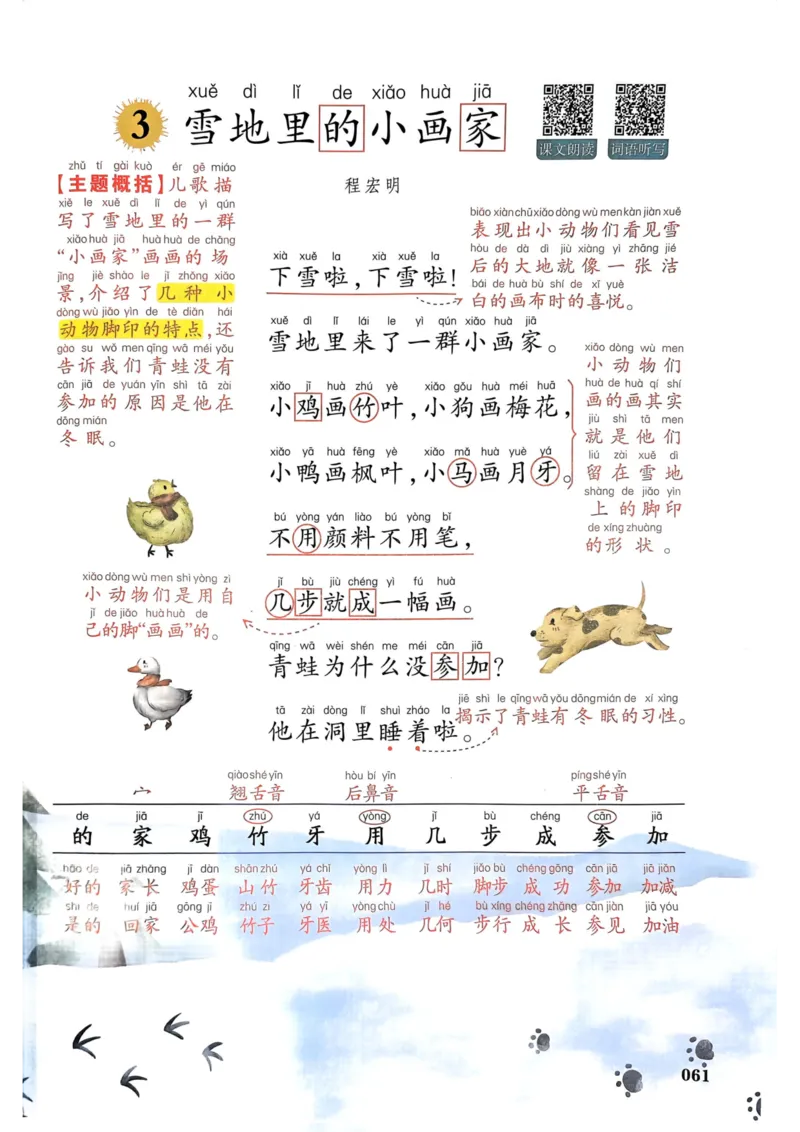 xuě dì lǐ de xiǎo huà jiā
3 雪地里的小画家
课文朗读 词语听写
程宏明
zhǔ tí gài kuò ér gē miáo
【主题概括】儿歌描
xiě le xuě dì lǐ de yì qún
写了雪地里的一群
xiǎo huà jiā huà huà de chǎng
“小画家”画画的场
jǐng jiè shào le jǐ zhǒng xiǎo
景,介绍了几种小
dòng wù jiǎo yìn de tè diǎn hái
动物脚印的特点,还
gào su wǒ men qīng wā méi yǒu
告诉我们青蛙没有
cān jiā de yuán yīn shì tā zài
参加的原因是他在
dōng mián
冬眠。
biǎo xiàn chū xiǎo dòng wù men kàn jiàn xuě
表现出小动物们看见雪
hòu de dà dì jiù xiàng yì zhāng jié
后的大地就像一张洁
bái de huà bù shí de xǐ yuè
白的画布时的喜悦。
xià xuě la xià xuě la
下雪啦,下雪啦!
xuě dì lǐ lái le yì qún xiǎo huà jiā
雪地里来了一群小画家。
xiǎo jī huà zhú yè xiǎo gǒu huà méi huā
小鸡画竹叶,小狗画梅花,
xiǎo yā huà fēng yè xiǎo mǎ huà yuè yá
小鸭画枫叶,小马画月牙。
xiǎo dòng wù men
小动物们
huà de huà qí shí
画的画其实
jiù shì tā men
就是他们
liú zài xuě dì
留在雪地
shàng de jiǎo yìn
上的脚印
de xíng zhuàng
的形状。
bú yòng yán liào bú yòng bǐ
不用颜料不用笔,
jǐ bù jiù chéng yì fú huà
几步就成一幅画。
xiǎo dòng wù men shì yòng zì
小动物们是用自
jǐ de jiǎo huà huà de
己的脚“画画”的。
qīng wā wèi shén me méi cān jiā
青蛙为什么没参加?
tā zài dòng lǐ shuì zháo la
他在洞里睡着啦。
jiē shì le qīng wā yǒu dōng mián de xí xìng
揭示了青蛙有冬眠的习性。
qiào shé yīn hòu bí yīn píng shé yīn
宀 翘舌音 后鼻音 平舌音
de jiā jī zhú yá yòng jǐ bù chéng cān jiā
的 家 鸡 竹 牙 用 几 步 成 参 加
hǎo de jiā zhǎng jī dàn shān zhú yá chǐ yòng lì jǐ shí jiǎo bù chéng gōng cān jiā jiā jiǎn
好的 家长 鸡蛋 山竹 牙齿 用力 几时 脚步 成功 参加 加减
shì de huí jiā gōng jī zhú zi yá yī yòng chù jǐ hé bù xíng chéng zhǎng cān jiàn jiā yóu
是的 回家 公鸡 竹子 牙医 用处 几何 步行 成长 参见 加油
061